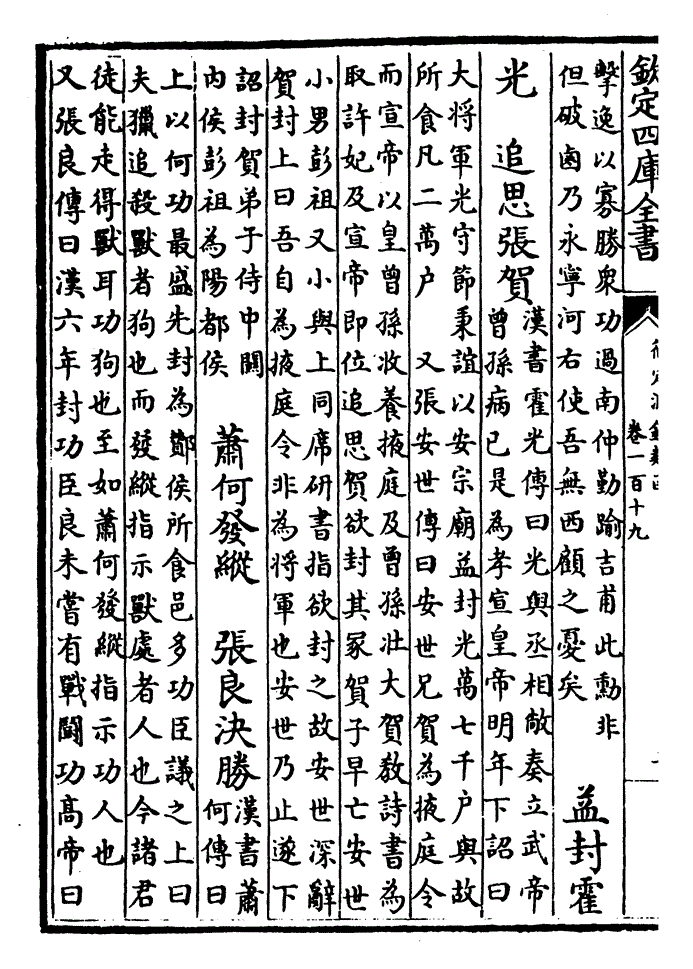 欽定四庫全書
卷一百十九
擊逸以寡勝衆功過南仲勤踰吉甫此勳非
但破鹵乃永寧河右使吾無西顧之憂矣
益封霍
光　追思張賀
漢書霍光傳曰光與丞相敞奏立武帝
曾孫病已是為孝宣皇帝明年下詔曰
大將軍光守節秉誼以安宗廟益封光萬七千户與故
所食凡二萬户　又張安世傳曰安世兄賀為掖庭令
而宣帝以皇曾孫收養掖庭及曾孫壯大賀教詩書為
取許妃及宣帝即位追思賀欲封其冢賀子早亡安世
小男彭祖又小與上同席研書指欲封之故安世深辭
賀封上曰吾自為掖庭令非為將軍也安世乃止遂下
詔封賀弟子侍中關
内侯彭祖為陽都侯
蕭何發縱　張良決勝
漢書蕭
何傳曰
上以何功最盛先封為酇侯所食邑多功臣議之上曰
夫獵追殺獸者狗也而發縱指示獸處者人也今諸君
徒能走得獸耳功狗也至如蕭何發縱指示功人也
又張良傳曰漢六年封功臣良未嘗有戰鬬功髙帝曰